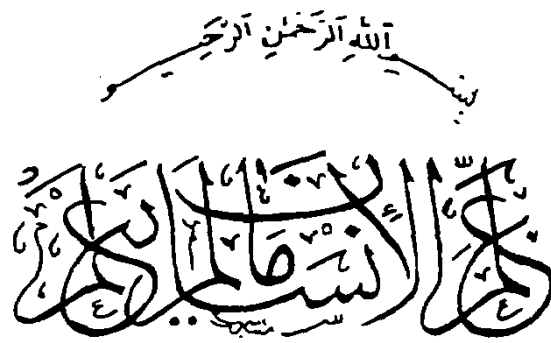 بِسْمِ ٱللَّهِ ٱلرَّحْمَٰنِ ٱلرَّحِيمِ
عَلَّمَ ٱلْإِنسَٰنَ مَا لَمْ يَعْلَمْ